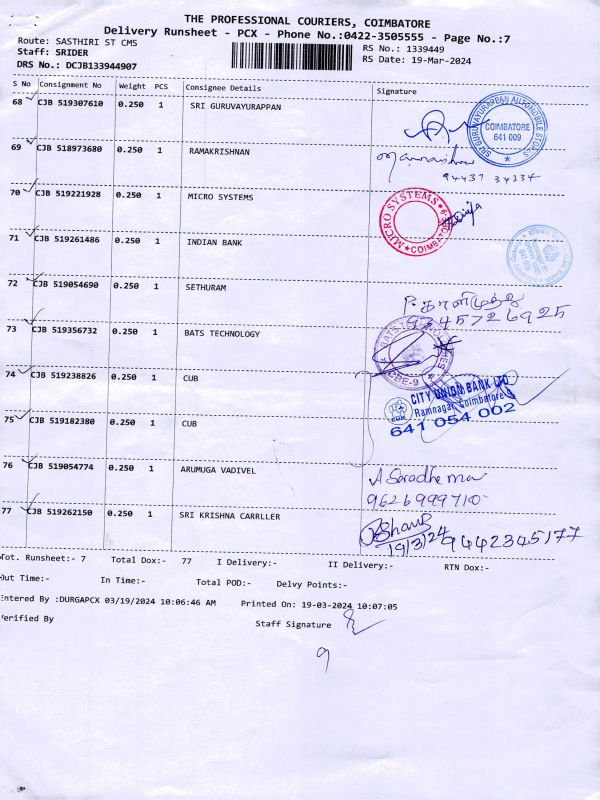 THE PROFESSIONAL COURIERS, COIMBATORE
Delivery Runsheet - PCX - Phone No.:0422-3505555 - Page No.:7
Route: SASTHIRI ST CMS
RS No.: 1339449
Staff: SRIDER
RS Date: 19-Mar-2024
DRS No.: DCJB133944907
S No Consignment No Weight PCS Consignee Details Signature
68 CJB 519307610 0.250 1 SRI GURUVAYURAPPAN
SRI GURUVAYURAPPAN AUTOMOBILE STORES COIMBATORE 641 009
69 CJB 518973680 0.250 1 RAMAKRISHNAN
94437 34334
70 CJB 519221928 0.250 1 MICRO SYSTEMS
MICRO SYSTEMS COIMBATORE-9
71 CJB 519261486 0.250 1 INDIAN BANK
72 CJB 519054690 0.250 1 SETHURAM
P. காளிமுத்து
9345726925
73 CJB 519356732 0.250 1 BATS TECHNOLOGY
BATS TECHNOLOGIES CBE-9
74 CJB 519238826 0.250 1 CUB
CITY UNION BANK LTD
Ramnagar, Coimbatore
641 054 002
75 CJB 519182380 0.250 1 CUB
76 CJB 519054774 0.250 1 ARUMUGA VADIVEL
9626999710
77 CJB 519262150 0.250 1 SRI KRISHNA CARRLLER
19/3/24 9442345177
Tot. Runsheet:- 7 Total Dox:- 77 I Delivery:- II Delivery:- RTN Dox:-
Out Time:- In Time:- Total POD:- Delvy Points:-
Entered By :DURGAPCX 03/19/2024 10:06:46 AM Printed On: 19-03-2024 10:07:05
Verified By Staff Signature
9